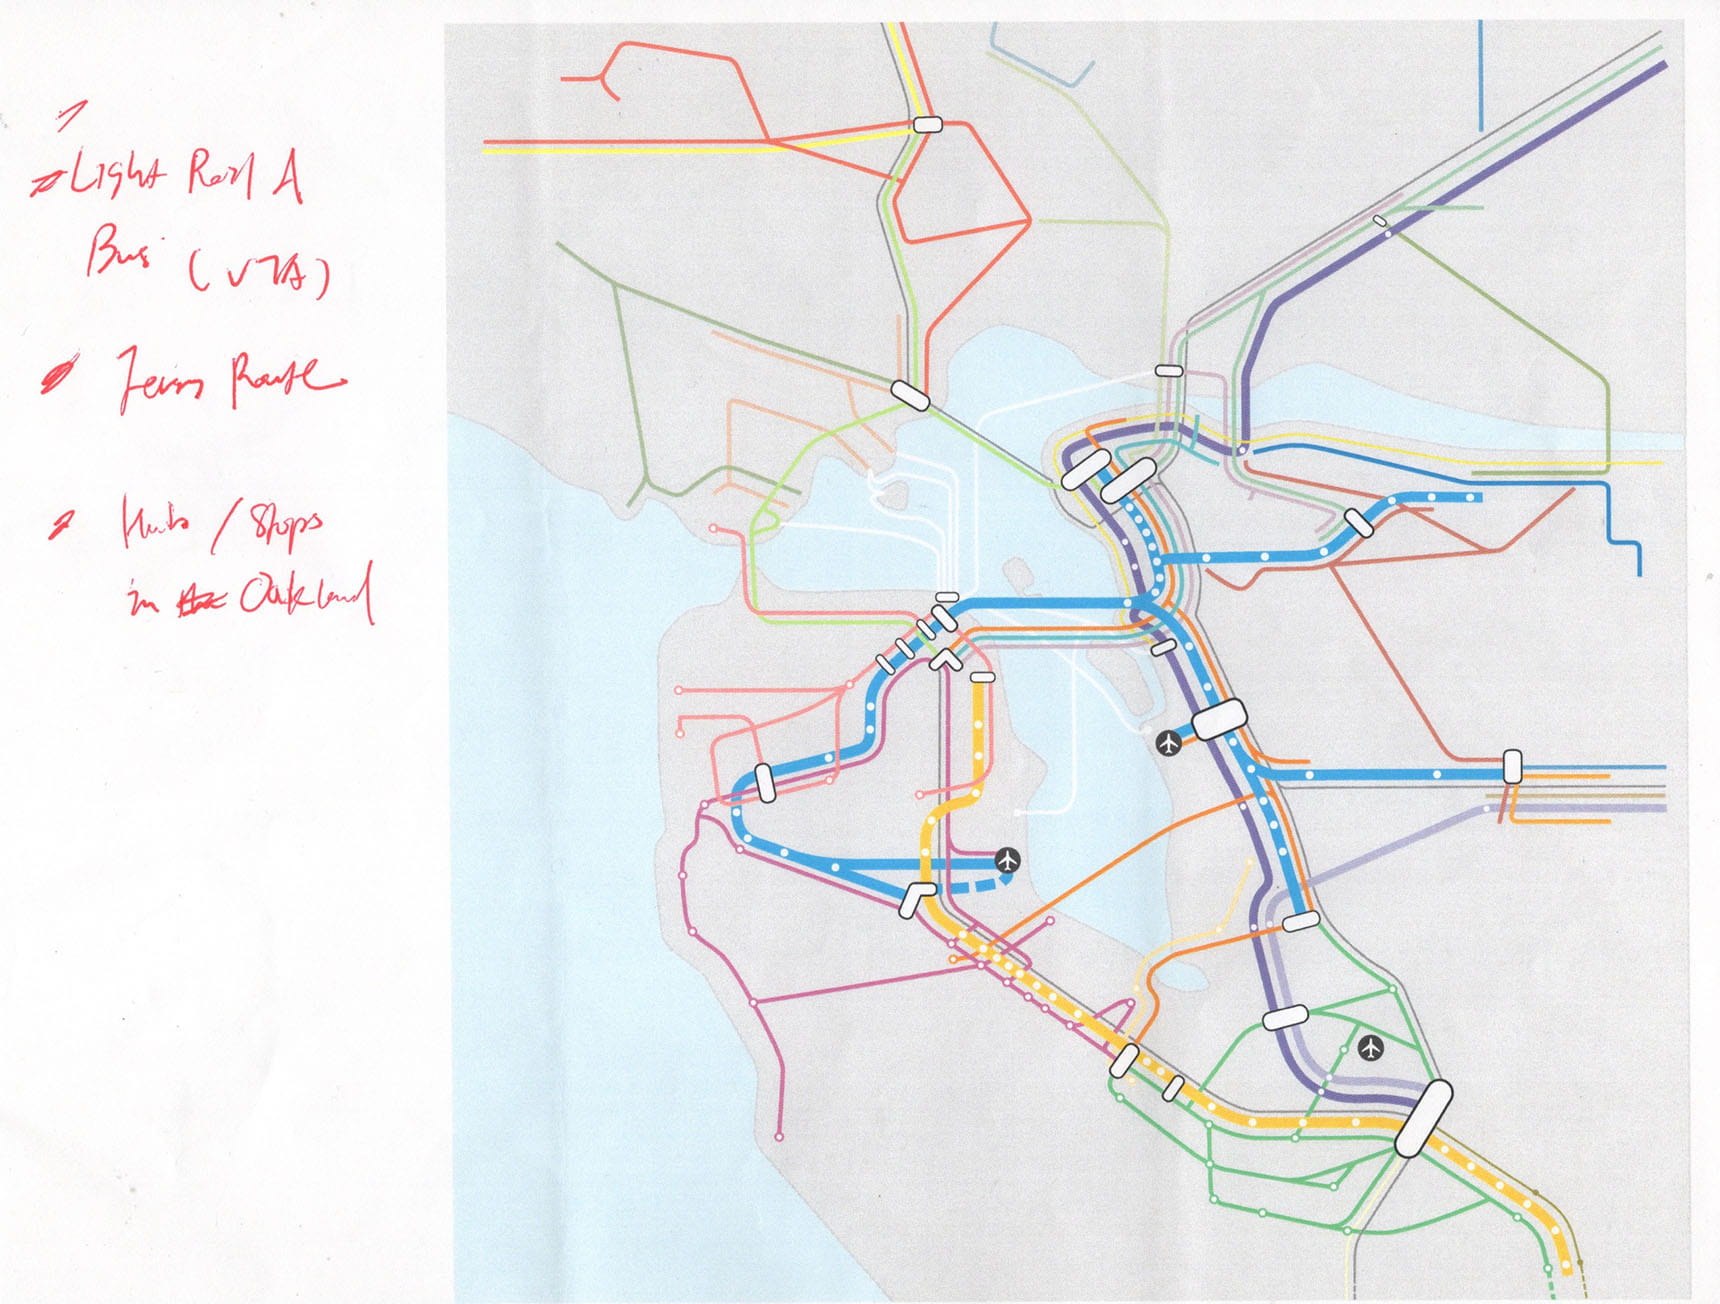 Light Rail &
Bus (VTA)
Ferry Route
Hubs / Stops
in Oakland